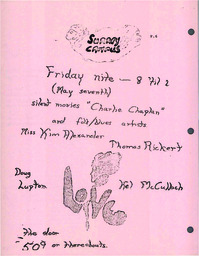 SURREY
CAMPUS
Friday nite — 8 til 2
(May seventh)
silent movies "Charlie Chaplin"
and folk/blues artists
Miss Kim Alexander
Thomas Rickert
Doug
Lupton
Kel McCulloch
LOVE
The door
50¢ or thereabouts.